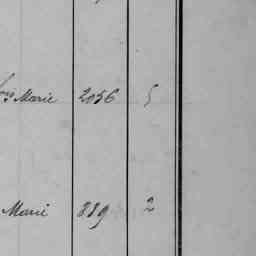 Marie 2056 5
Marie 889 2